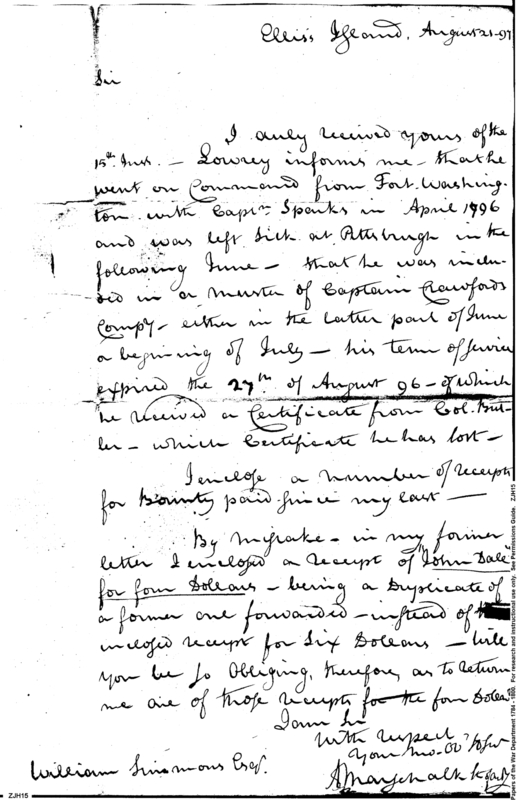 Ellis's Island, August 21-97
Sir
I duly received yours of the
15th. Inst. – Lowrey informs me – that he
went on Command from Fort. Washing-
ton with Captn. Sparks in April 1796
and was left Sick at Pittsburgh in the
following June – that he was inclu-
ded in a Muster of Captain Crawfords
Compy – either in the latter part of June
or beginning of July – his term of service
expired the 27th of August 96 – of which
he received a Certificate from Col. But-
ler – which Certificate he has lost –
I enclose a number of receipts
for Bounty paid since my last —
By mistake – in my former
letter I enclosed a receipt of "John Dale"
for four Dollars – being a Duplicate of
a former one forwarded – instead of the
inclosed receipt for Six Dollars – Will
you be so Obliging, therefore, as to return
me one of those receipts for the four Dollars
I am Sir
With respect
Your mo. Ob. Sert
A Marschalk
William Simmons Esqr.
ZJH15
Papers of the War Department 1784 - 1800. For research and instructional use only. See Permissions Guide. ZJH15